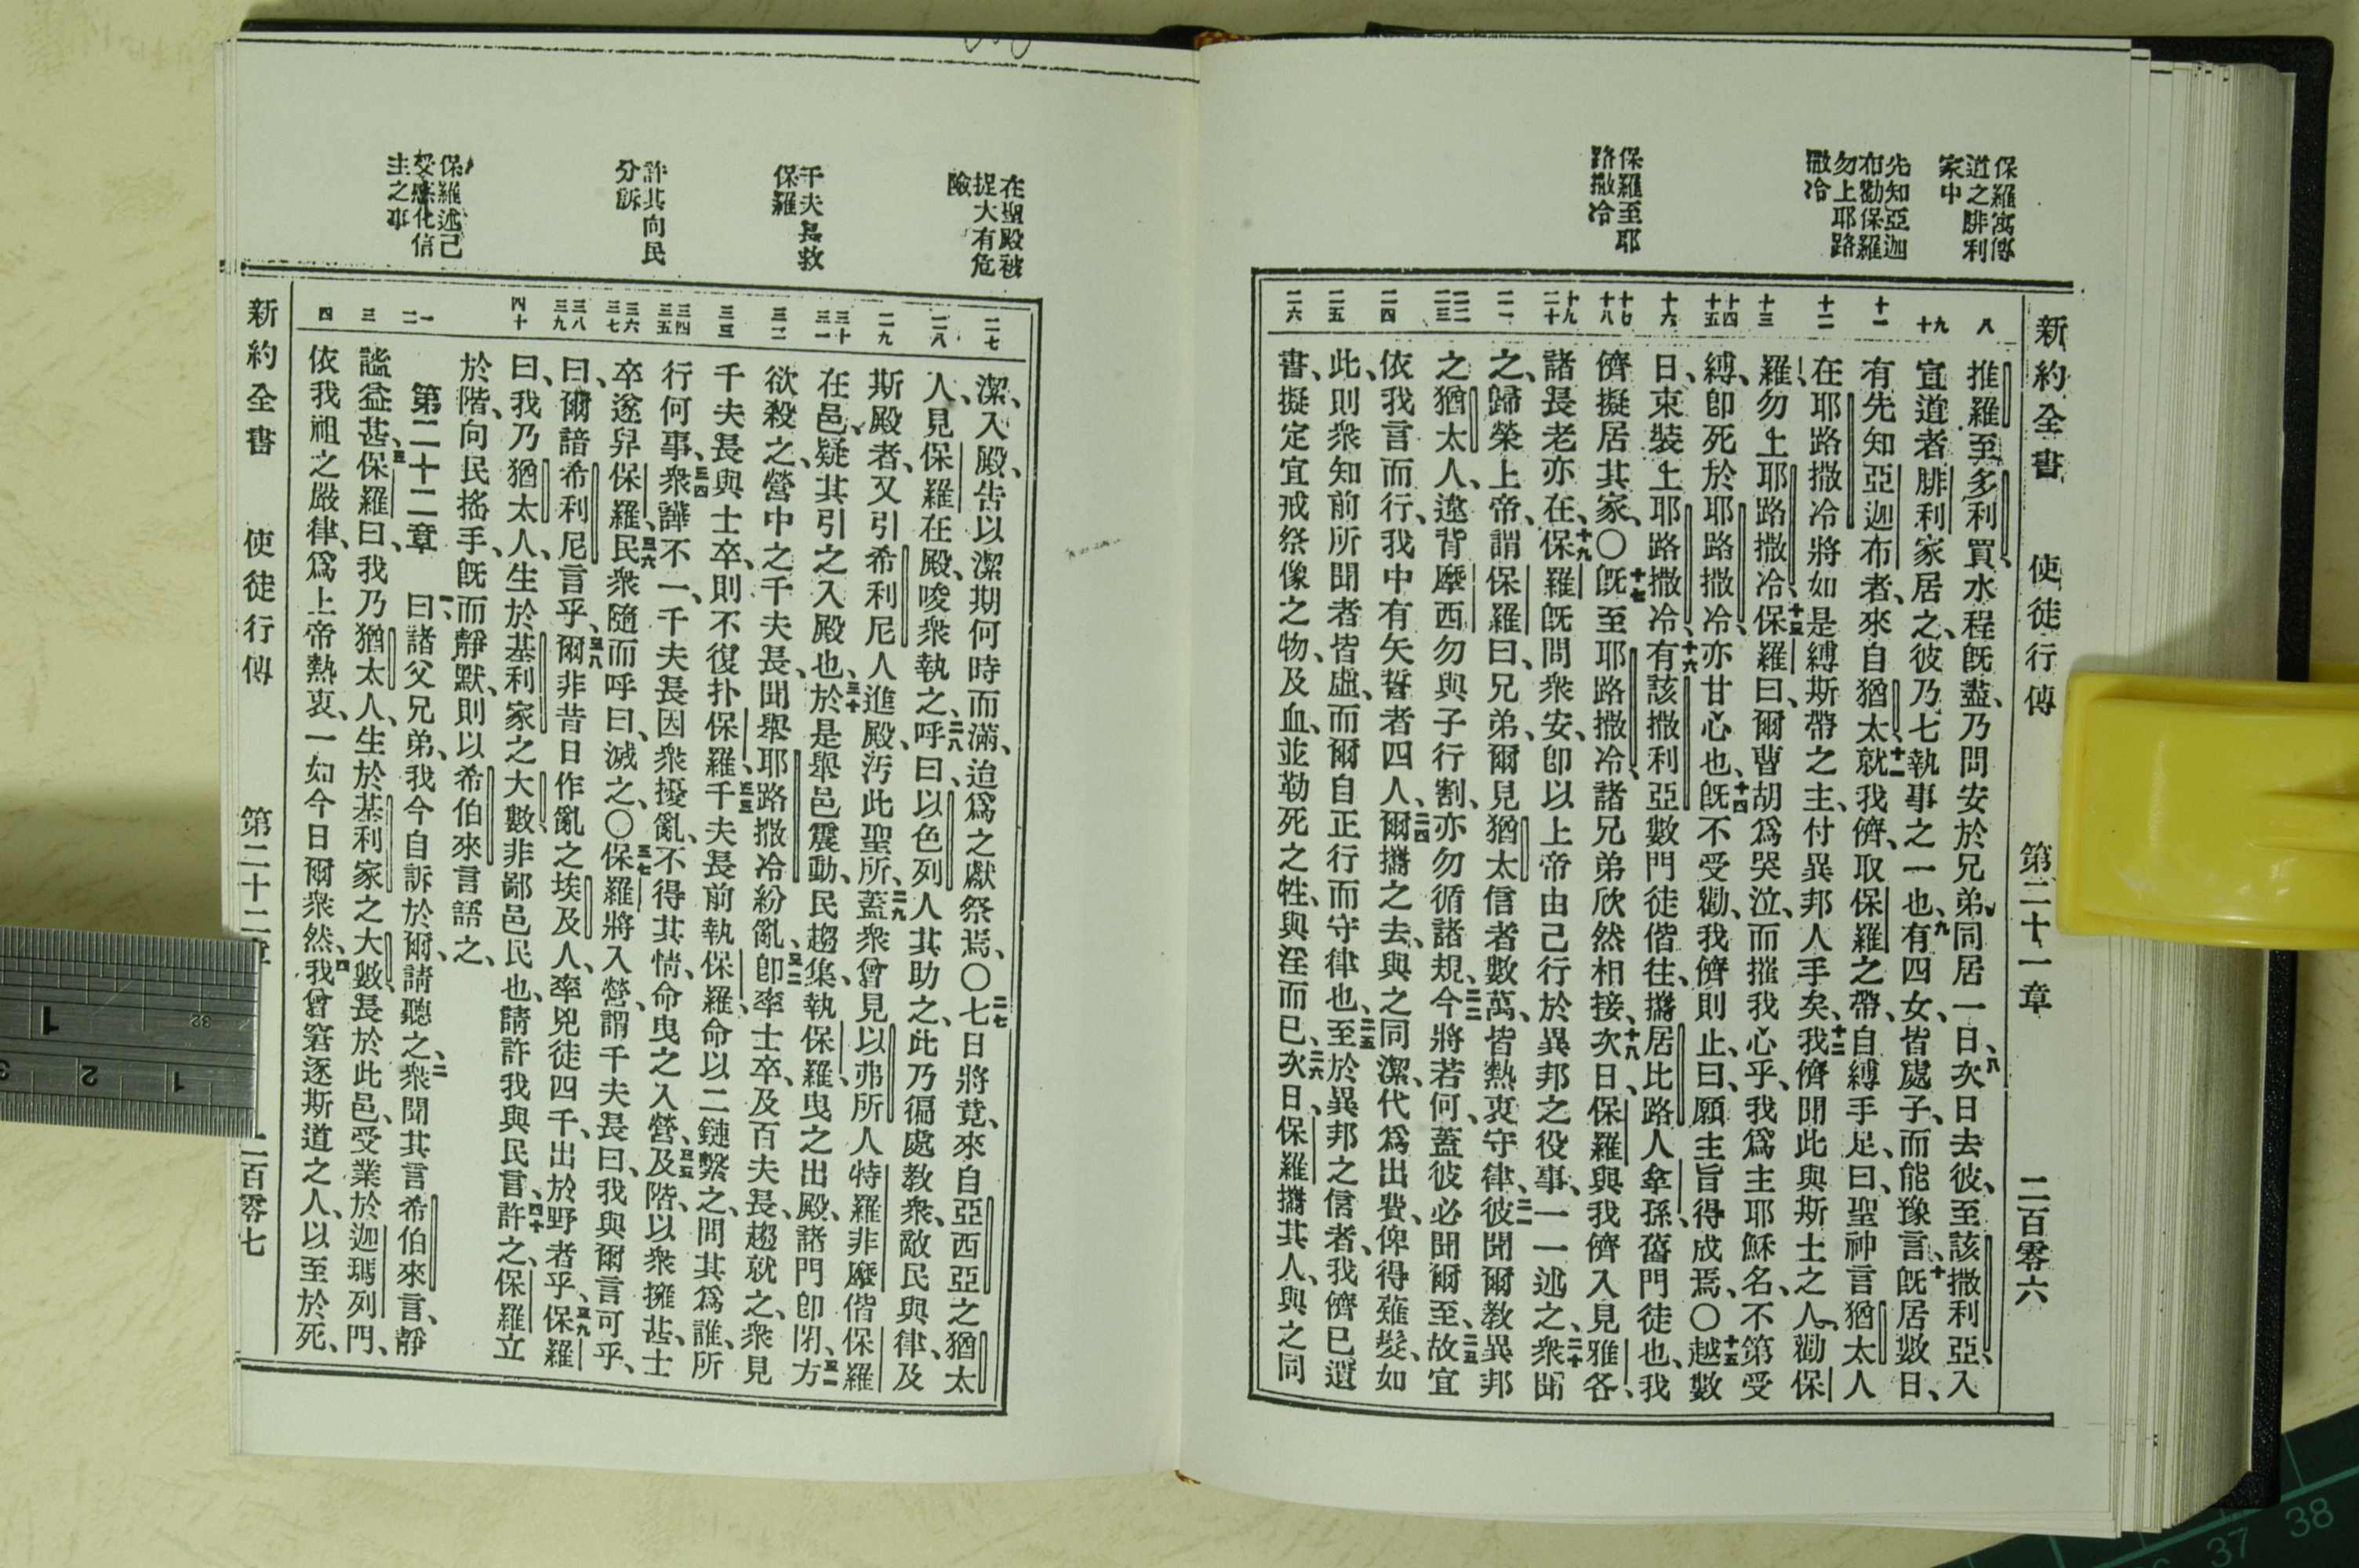 保羅寓傳
道之腓利
家中
先知亞迦
布勸保羅
勿上耶路
撒冷
保羅至耶
路撒冷
新約全書 使徒行傳 第二十一章 二百零六
八
九
十
十一
十二
十三
十四
十五
十六
十七
十八
十九
二十
二一
二二
二三
二四
二五
二六
推羅至多利買、水程旣盡、乃問安於兄弟、同居一日、八次日去彼、至該撒利亞、入
宣道者腓利家居之、彼乃七執事之一也、九有四女、皆處子、而能豫言、十旣居數日、
有先知亞迦布者、來自猶太、十一就我儕、取保羅之帶、自縛手足、曰、聖神言猶太人
在耶路撒冷將如是縛斯帶之主、付異邦人手矣、十二我儕聞此、與斯士之人、勸保
羅、勿上耶路撒冷、十三保羅曰、爾曹胡爲哭泣、而摧我心乎、我爲主耶穌名、不第受
縛、卽死於耶路撒冷、亦甘心也、十四旣不受勸、我儕則止、曰、願主旨得成焉、〇十五越數
日、束裝上耶路撒冷、十六有該撒利亞數門徒偕往、攜居比路人拿孫、舊門徒也、我
儕擬居其家、〇十七旣至耶路撒冷、諸兄弟欣然相接、十八次日、保羅與我儕入見雅各、
諸長老亦在、十九保羅旣問衆安、卽以上帝由己行於異邦之役事、一一述之、二十衆聞
之、歸榮上帝、謂保羅曰、兄弟、爾見猶太信者數萬、皆熱衷守律、二一彼聞爾教異邦
之猶太人、違背摩西、勿與子行割、亦勿循諸規、二二今將若何、蓋彼必聞爾至、二三故宜
依我言而行、我中有矢誓者四人、二四爾攜之去、與之同潔、代爲出費、俾得薙髮、如
此、則衆知前所聞者皆虛、而爾自正行而守律也、二五至於異邦之信者、我儕已遺
書、擬定宜戒祭像之物、及血、並勒死之牲、與淫而已、二六次日、保羅攜其人、與之同
在聖殿被
捉大有危
險
千夫長救
保羅
許其向民
分訴
保羅述己
受感化信
主之事
二七
二八
二九
三十
三一
三二
三三
三四
三五
三六
三七
三八
三九
四十
一
二
三
四
潔、入殿、告以潔期何時而滿、迨爲之獻祭焉、〇二七七日將竟、來自亞西亞之猶太
人、見保羅在殿、唆衆執之、二八呼曰、以色列人其助之、此乃徧處教衆、敵民與律、及
斯殿者、又引希利尼人進殿、汚此聖所、二九蓋衆曾見以弗所人特羅非摩偕保羅
在邑、疑其引之入殿也、三十於是舉邑震動、民趨集、執保羅、曳之出殿、諸門卽閉、三一方
欲殺之、營中之千夫長、聞舉耶路撒冷紛亂、三二卽率士卒、及百夫長、趨就之、衆見
千夫長與士卒、則不復扑保羅、三三千夫長前執保羅、命以二鏈繫之、問其爲誰、所
行何事、三四衆譁不一、千夫長因衆擾亂、不得其情、命曳之入營、三五及階、以衆擁甚、士
卒遂舁保羅、三六民衆隨而呼曰、滅之、〇三七保羅將入營、謂千夫長曰、我與爾言可乎、
曰、爾諳希利尼言乎、三八爾非昔日作亂之埃及人、率兇徒四千、出於野者乎、三九保羅
曰、我乃猶太人、生於基利家之大數、非鄙邑民也、請許我與民言、四十許之、保羅立
於階、向民搖手、旣而靜默、則以希伯來言語之、
第二十二章 一曰、諸父兄弟、我今自訴於爾、請聽之、二衆聞其言希伯來言、靜
謐益甚、三保羅曰、我乃猶太人、生於基利家之大數、長於此邑、受業於迦瑪列門、
依我祖之嚴律、爲上帝熱衷、一如今日爾衆然、四我曾窘逐斯道之人、以至於死、
新約全書 使徒行傳 第二十二章 二百零七
1
32
3 2 1
37 38